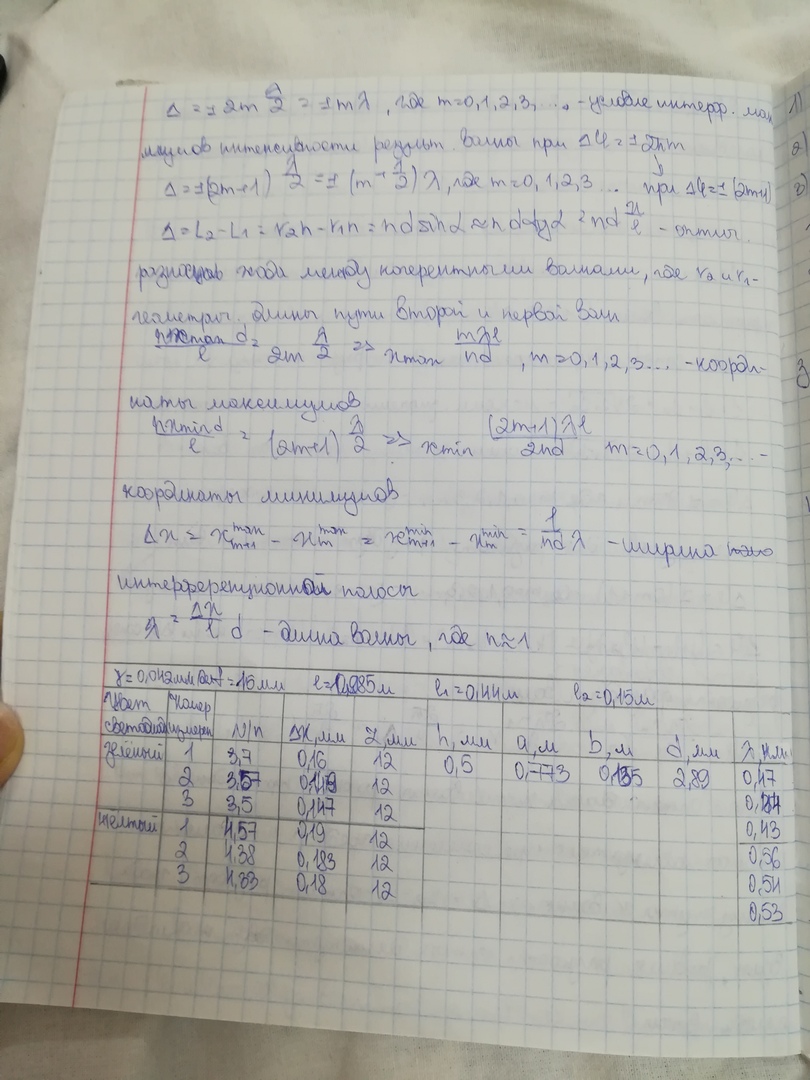 Δ = ±2m λ/2 = ±mλ, где m=0,1,2,3, ..., -условие интерф. мак
симумов интенсивности результ. волны при Δφ=±2πm
Δ=±(2m+1) λ/2 = ± (m+1/2) λ, где m=0, 1, 2, 3 ... при Δφ=± (2m+1)
Δ=L2-L1=r2n-r1n=nd sinα≈nd tgα=nd x/l - оптич.
разность хода между когерентными волнами, где r2 и r1-
геометрич. длины пути второй и первой волн
nxmax d/l = 2m λ/2 => xmax mλl/nd, m=0,1,2,3... -коорди-
наты максимумов
nxmin d/l = (2m+1) λ/2 => xmin (2m+1)λl/2nd m=0,1,2,3,...-
координаты минимумов
Δx = x max m+1 - x max m = x min m+1 - x min m = l/nd λ - ширина
интерференционной полосы
λ = Δx/l d - длина волны, где n≈1
γ=0,042мм/дел f=16мм l=0,985м l1=0,44м l2=0,15м
Цвет светодиода Номер измерен N/n Δx, мм Z, мм h, мм a, м b, м d, мм λ, нм
зелёный 1 3,7 0,16 12 0,5 0,773 0,135 2,89 0,47
2 3,57 12
3 3,5 0,147 12 0,43
жёлтый 1 4,57 0,19 12 0,56
2 4,38 0,183 12 0,54
3 4,33 0,18 12 0,53